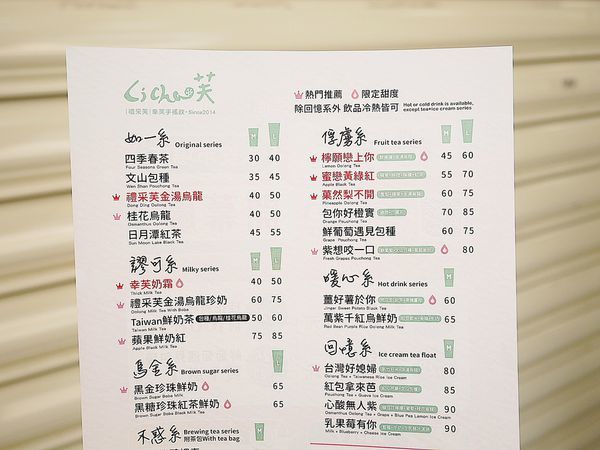 Li Cha 芙
|禮采芙| 幸芙手搖飲・Since2014
熱門推薦 限定甜度
除回憶系外 飲品冷熱皆可 Hot or cold drink is available, except tea+ice cream series
如一系 Original series M L
四季春茶 30 40
Four Seasons Green Tea
文山包種 35 45
Wen Shan Pouchong Tea
禮采芙金湯烏龍 40 50
Dong Ding Oolong Tea
桂花烏龍 40 50
Osmanthus Oolong Tea
日月潭紅茶 45 55
Sun Moon Lake Black Tea
謬可系 Milky series M L
幸芙奶霜 40 50
Thick Milk Tea
禮采芙金湯烏龍珍奶 60 75
Oolong Milk Tea With Boba
Taiwan鮮奶茶 包種/烏龍/桂花烏龍 50 60
Taiwan Milk Tea
蘋果鮮奶紅 75 85
Apple Black Milk Tea
焉金系 Brown sugar series L
黑金珍珠鮮奶 65
Brown Sugar Boba Milk
黑糖珍珠紅茶鮮奶 65
Brown Sugar Boba Black Milk Tea
不惑系 Brewing tea series
附茶包With tea bag M
俘虜系 Fruit tea series M L
檸願戀上你 45 60
Lemon Oolong Tea
蜜戀黃綠紅 55 70
Apple Black Tea
菓然梨不開 60 75
Pineapple Oolong Tea
包你好橙實 70 85
Orange Pouchong Tea
鮮葡萄遇見包種 60 75
Grape Pouchong Tea
紫想咬一口 80
Fresh Grapes Pouchong Tea
暖心系 Hot drink series M
薑好薯於你 60
Jinger Sweet Potato Black Tea
萬紫千紅烏鮮奶 65
Red Bean Purple Rice Oolong Milk Tea
回憶系 Ice cream tea float L
台灣好媳婦 80
Oolong Tea + Taiwanese Rice Ice Cream
紅包拿來芭 85
Pouchong Tea + Guava Ice Cream
心酸無人紫 90
Osmanthus Oolong Tea + Grape + Blue Pea Lemon Ice Cream
乳果莓有你 90
Milk + Blueberry + Cheese Ice Cream